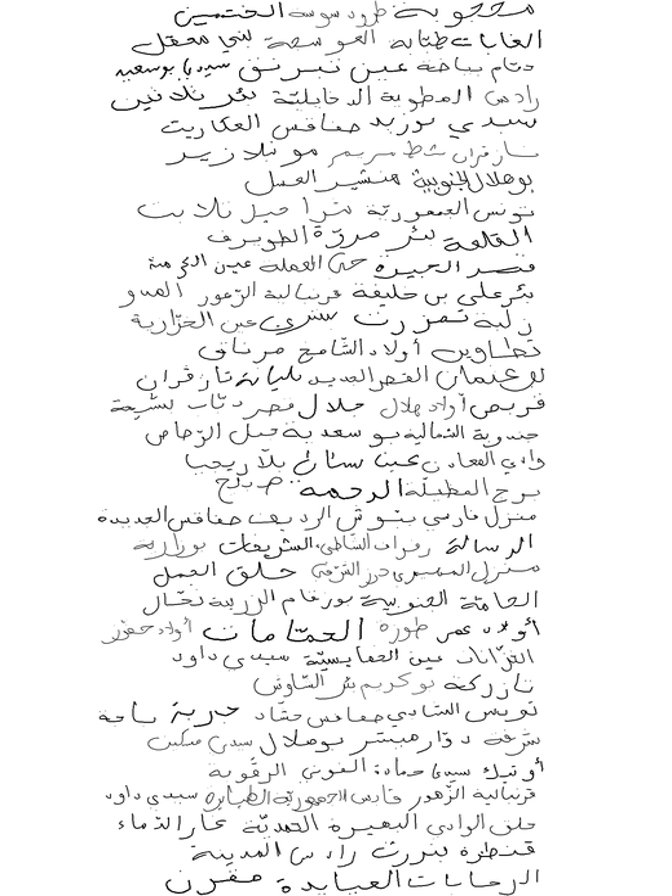 محجوبة طرود سوسة الختمين
الغابات طبابة العوسجة بني معقل
دمام بباطة عين تبرنق سيدي بوسعيد
رادس المطوية الدخايلية بئر ثلاثين
سيدي بوزيد صفاقس العكاريت
تازغران شط مريم مونبلازير
بوهلال الجنوبية هنشير العسل
تونس الجمهورية ثلابت
القلعة بئر مروّة الطويرف
قصر الحيرة حي العملة عين الكرمة
بئر علي بن خليفة قرنبالية الزهور
زلبة تمزرت سندي عين الخزازية
تطاوين أولاد الشامخ مرناق
بوعثمان القصر الجديد مليانة تازغران
قربص أولاد هلال جلال قصر
جندوبة الشمالية بوسعدية جبل الرصاص
وادي المعادن بلاريجيا
برج الرحمة
منزل فارسي الرديف صفاقس الجديدة
الرسالة الشاطئ الشريفات بوزارية
منزل المهيري حلق الجمل
الحامة الجنوبية بورغام الزريبة
أولاد عمر طورة الحمّامات أولاد حفوز
عين الصفايسيّة سيدي داود
تازركة بوكريم بئر الشاوش
تونس الشاذلي صفاقس حشّاد جربة باجة
شرفة دوّار هيشر بوهلال سيدي مسكين
أوتيك سيدي حمادة القوني الرقوبة
قرنبالية الزهور قابس الجمهورية سيدي داود
حلق الوادي البحيرة غار الدماء
قنطرة بنزرت رادس المدينة
الرحابات العبايدة مقرن